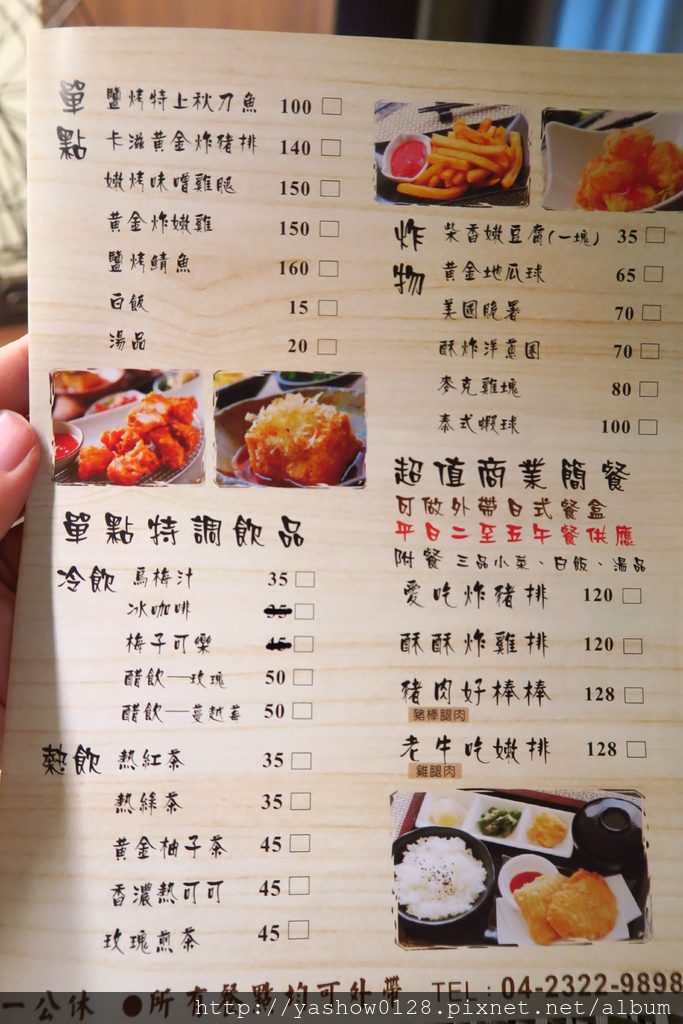 單點
鹽烤特上秋刀魚 100
卡滋黃金炸豬排 140
嫩烤味噌雞腿 150
黃金炸嫩雞 150
鹽烤鯖魚 160
白飯 15
湯品 20
單點特調飲品
冷飲
烏梅汁 35
冰咖啡 35
梅子可樂 45
醋飲—玫瑰 50
醋飲—蔓越莓 50
熱飲
熱紅茶 35
熱綠茶 35
黃金柚子茶 45
香濃熱可可 45
玫瑰煎茶 45
炸物
柴香嫩豆腐(一塊) 35
黃金地瓜球 65
美國脆薯 70
酥炸洋蔥圈 70
麥克雞塊 80
泰式蝦球 100
超值商業簡餐
可做外帶日式餐盒
平日二至五午餐供應
附餐 三品小菜、白飯、湯品
愛吃炸豬排 120
酥酥炸雞排 120
豬肉好棒棒 128
豬棒腿肉
老牛吃嫩排 128
雞腿肉
一公休 ●所有餐點均可外帶 TEL：04-2322-9898
http://yashow0128.pixnet.net/album